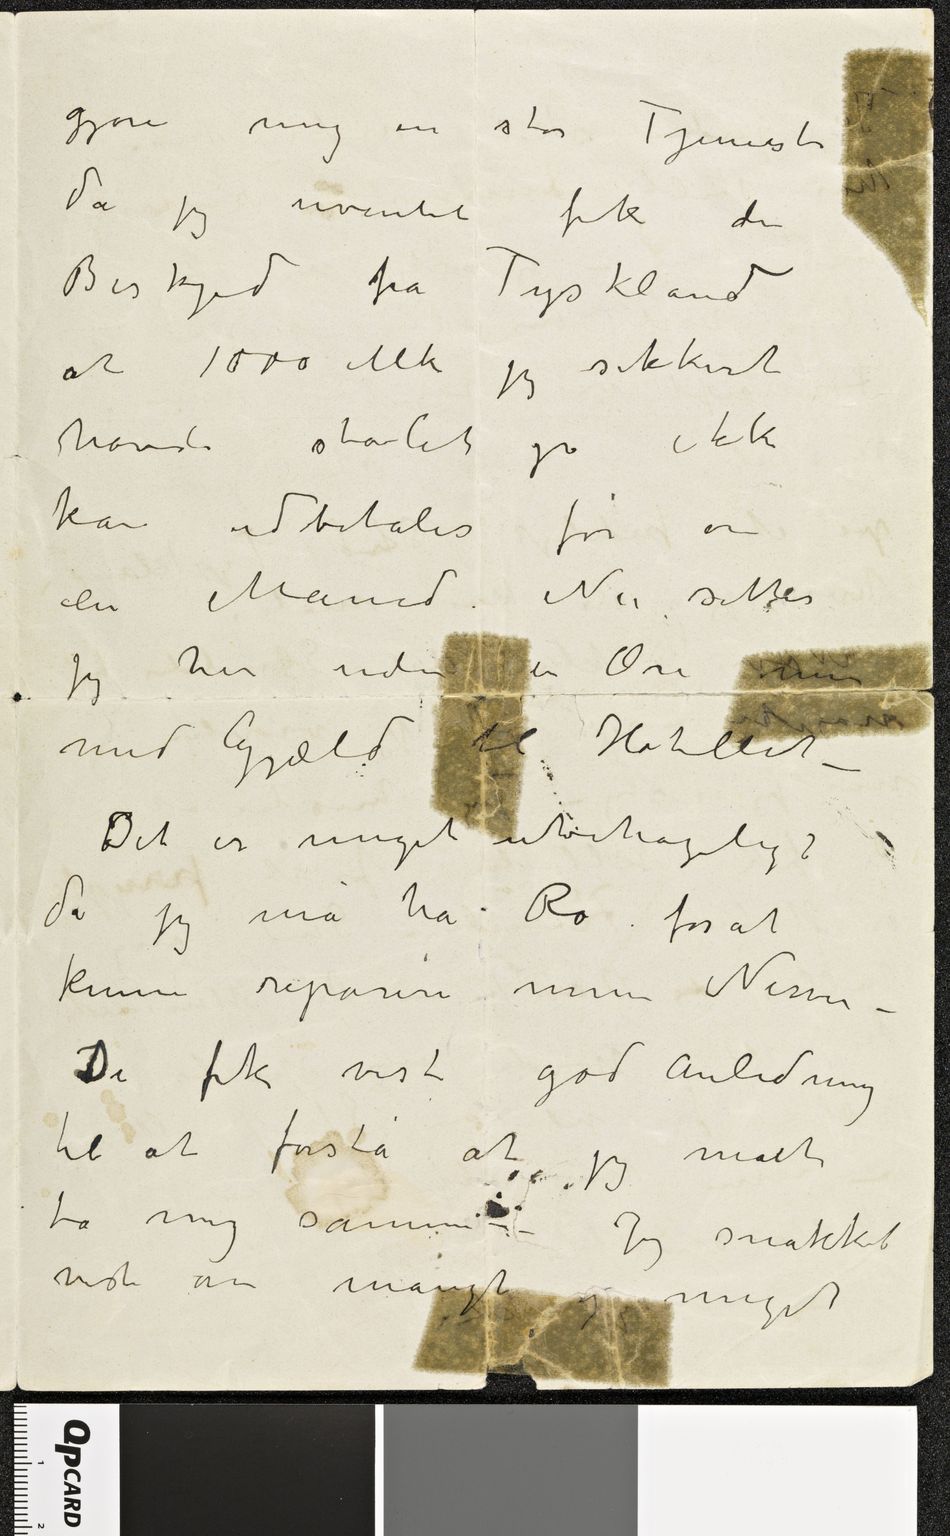 gjøre mig en stor Tjeneste
da jeg uventet fik den
Beskjed fra Tyskland
at 1000 Mk jeg sikkert
havde stolet på ikke
kan udbetales før om
en Maned. Nu sidder
jeg her uden en Øre men
med Gjæld til Hotellet –
Det er meget ubehageligt
da jeg må ha Ro for at
kunne reparere mine Nerver –
De fik vist god Anledning
til at forstå at jeg måtte
ta mig sammen – Jeg snakket
vist om mangt og meget
QPCARD
1
2